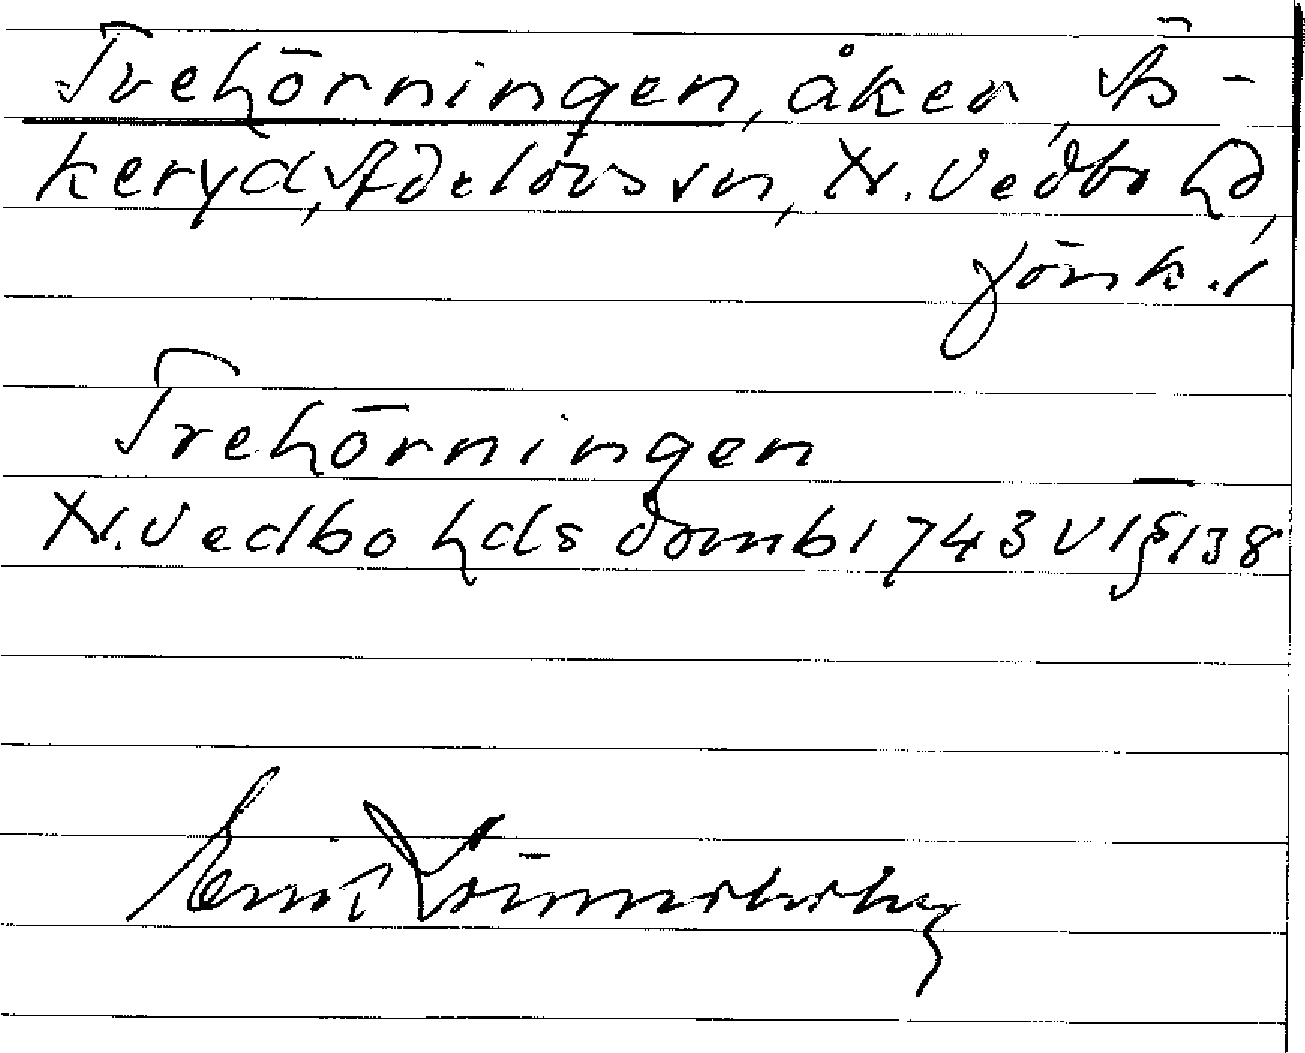 Trehörningen, åker, Äs-
keryd, Adelövs sn, N. Vedbo hd,
Jönk. l
Trehörningen
N. Vedbo hds domb 1743 VT § 138